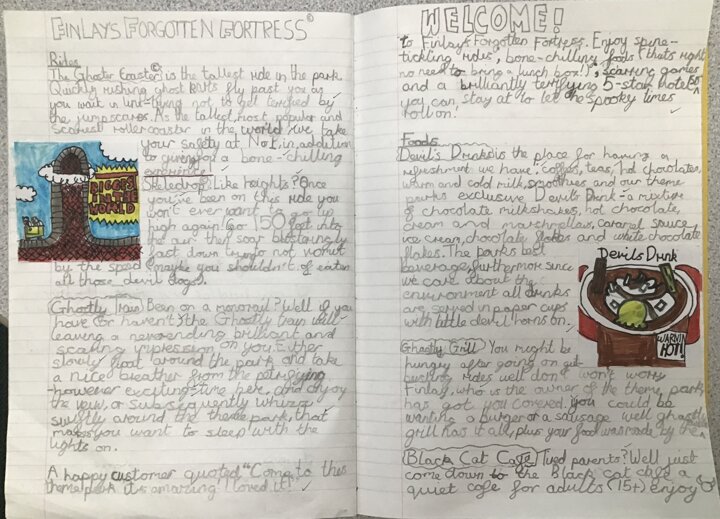 FINLAYS FORGOTTEN FORTRESS ©
Rides
The Ghoster Coaster© is the tallest ride in the park.
Quickly rushing ghost karts fly past you as
you wait in line - trying not to get terrified by
the jumpscares. As the tallest, most popular and
scariest rollercoaster in the world we take
your safety at No.1, in addition
to giving for a bone-chilling
experience.
Skeledrop Like heights? Once
you've been on this ride you
won't ever want to go up
high again! Go 150 feet into
the air then soar blisteringly
fast down trying to not vomit
by the speed (maybe you shouldn't of eaten
all those devil dogs).
BIGGEST
IN THE
WORLD
Ghostly Train Been on a monorail? Well if you
have or haven't, the Ghostly train will
leaving a neverending brilliant and
scaring impression on you. Either
slowly float around the park and take
a nice breather from the petrifying
however exciting time here, and enjoy
the view, or subsequently whizz
swiftly around the theme park, that
makes you want to sleep with the
lights on.
A happy customer quoted "Come to this
theme park it's amazing! I loved it!
WELCOME!
to Finlay's Forgotten Fortress. Enjoy spine-
tickling rides, bone-chilling foods (thats right
no need to bring a lunch box!), scarring games
and a brilliantly terrifying 5-star hotel so
you can stay at to let the spooky times
roll on.
Foods
Devil's Drinks is the place for having a
refreshment we have: coffees, teas, hot chocolates,
warm and cold milk, smoothies and our theme
parks exclusive Devils Drink - a mixture
of chocolate milkshakes, hot chocolate,
cream and marshmellow, caramel sauce
ice cream, chocolate flakes and white chocolate
flakes. The parks best
beverage, furthermore since
we care about the
environment all drinks
are served in paper cups
with little devil horns on.
Devils Drink
WARNING
HOT!
Ghostly Grill You might be
hungry after going on gut
bucking rides well don't won't worry
Finlay, who is the owner of the theme park
has got you covered, you could be
wanting a burger or a sausage well ghostly
grill has it all, plus your food was made by the
Black Cat Cafe Tired parents? Well just
come down to the Black cat cafe a
quiet cafe for adults (15+) enjoy